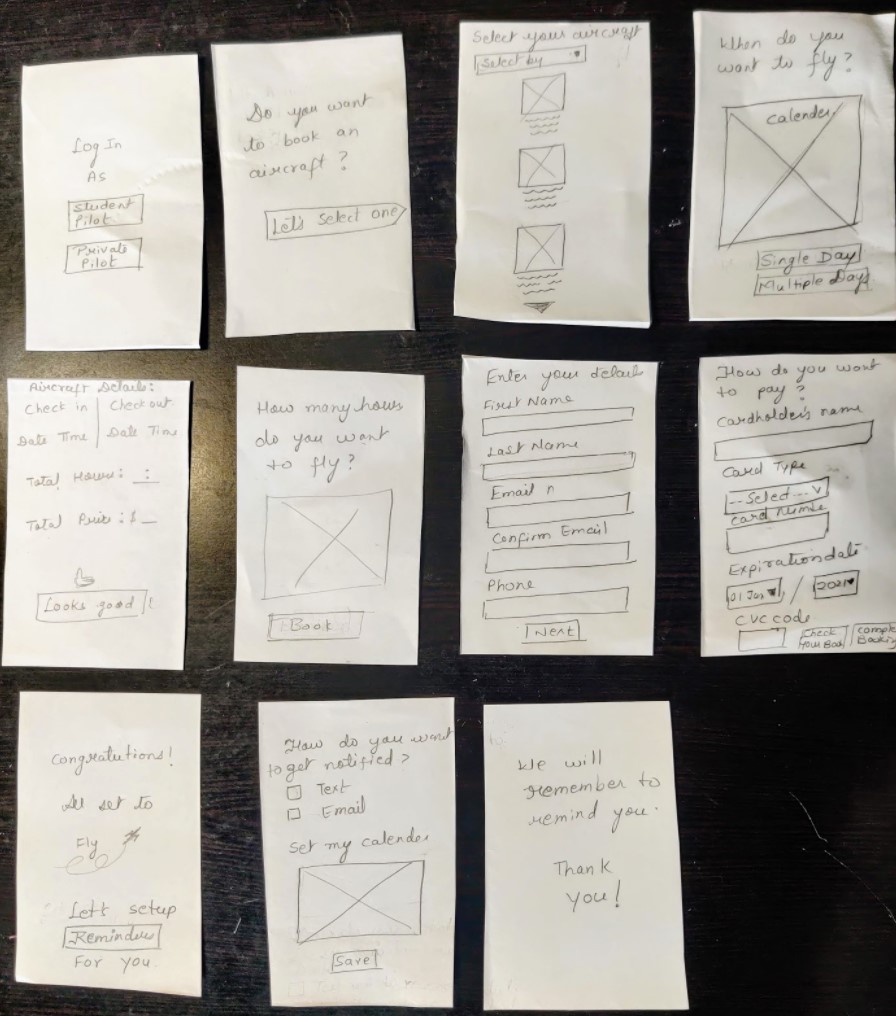 Log In
As
Student
Pilot
Private
Pilot
Do you want
to book an
aircraft ?
Let's Select one
Select your aircraft
Select by
When do you
want to fly?
Calender
Single Day
Multiple Days
Aircraft Details:
Check in | Check out
Date Time | Date Time
Total Hours: __:__
Total Price: $ __
Looks good !
How many hours
do you want
to fly?
Book
Enter your details
First Name
Last Name
Email
Confirm Email
Phone
Next
How do you want
to pay?
Cardholder's name
Card Type
--Select--
Card Number
Expiration date
01 Jan / 2021
CVC code
Check
Your Book
Complete
Booking
Congratutions!
All set to
Fly
Let's setup
Reminders
For you.
How do you want
to get notified ?
Text
Email
Set my calender
Save
We will
remember to
remind you.
Thank
you!